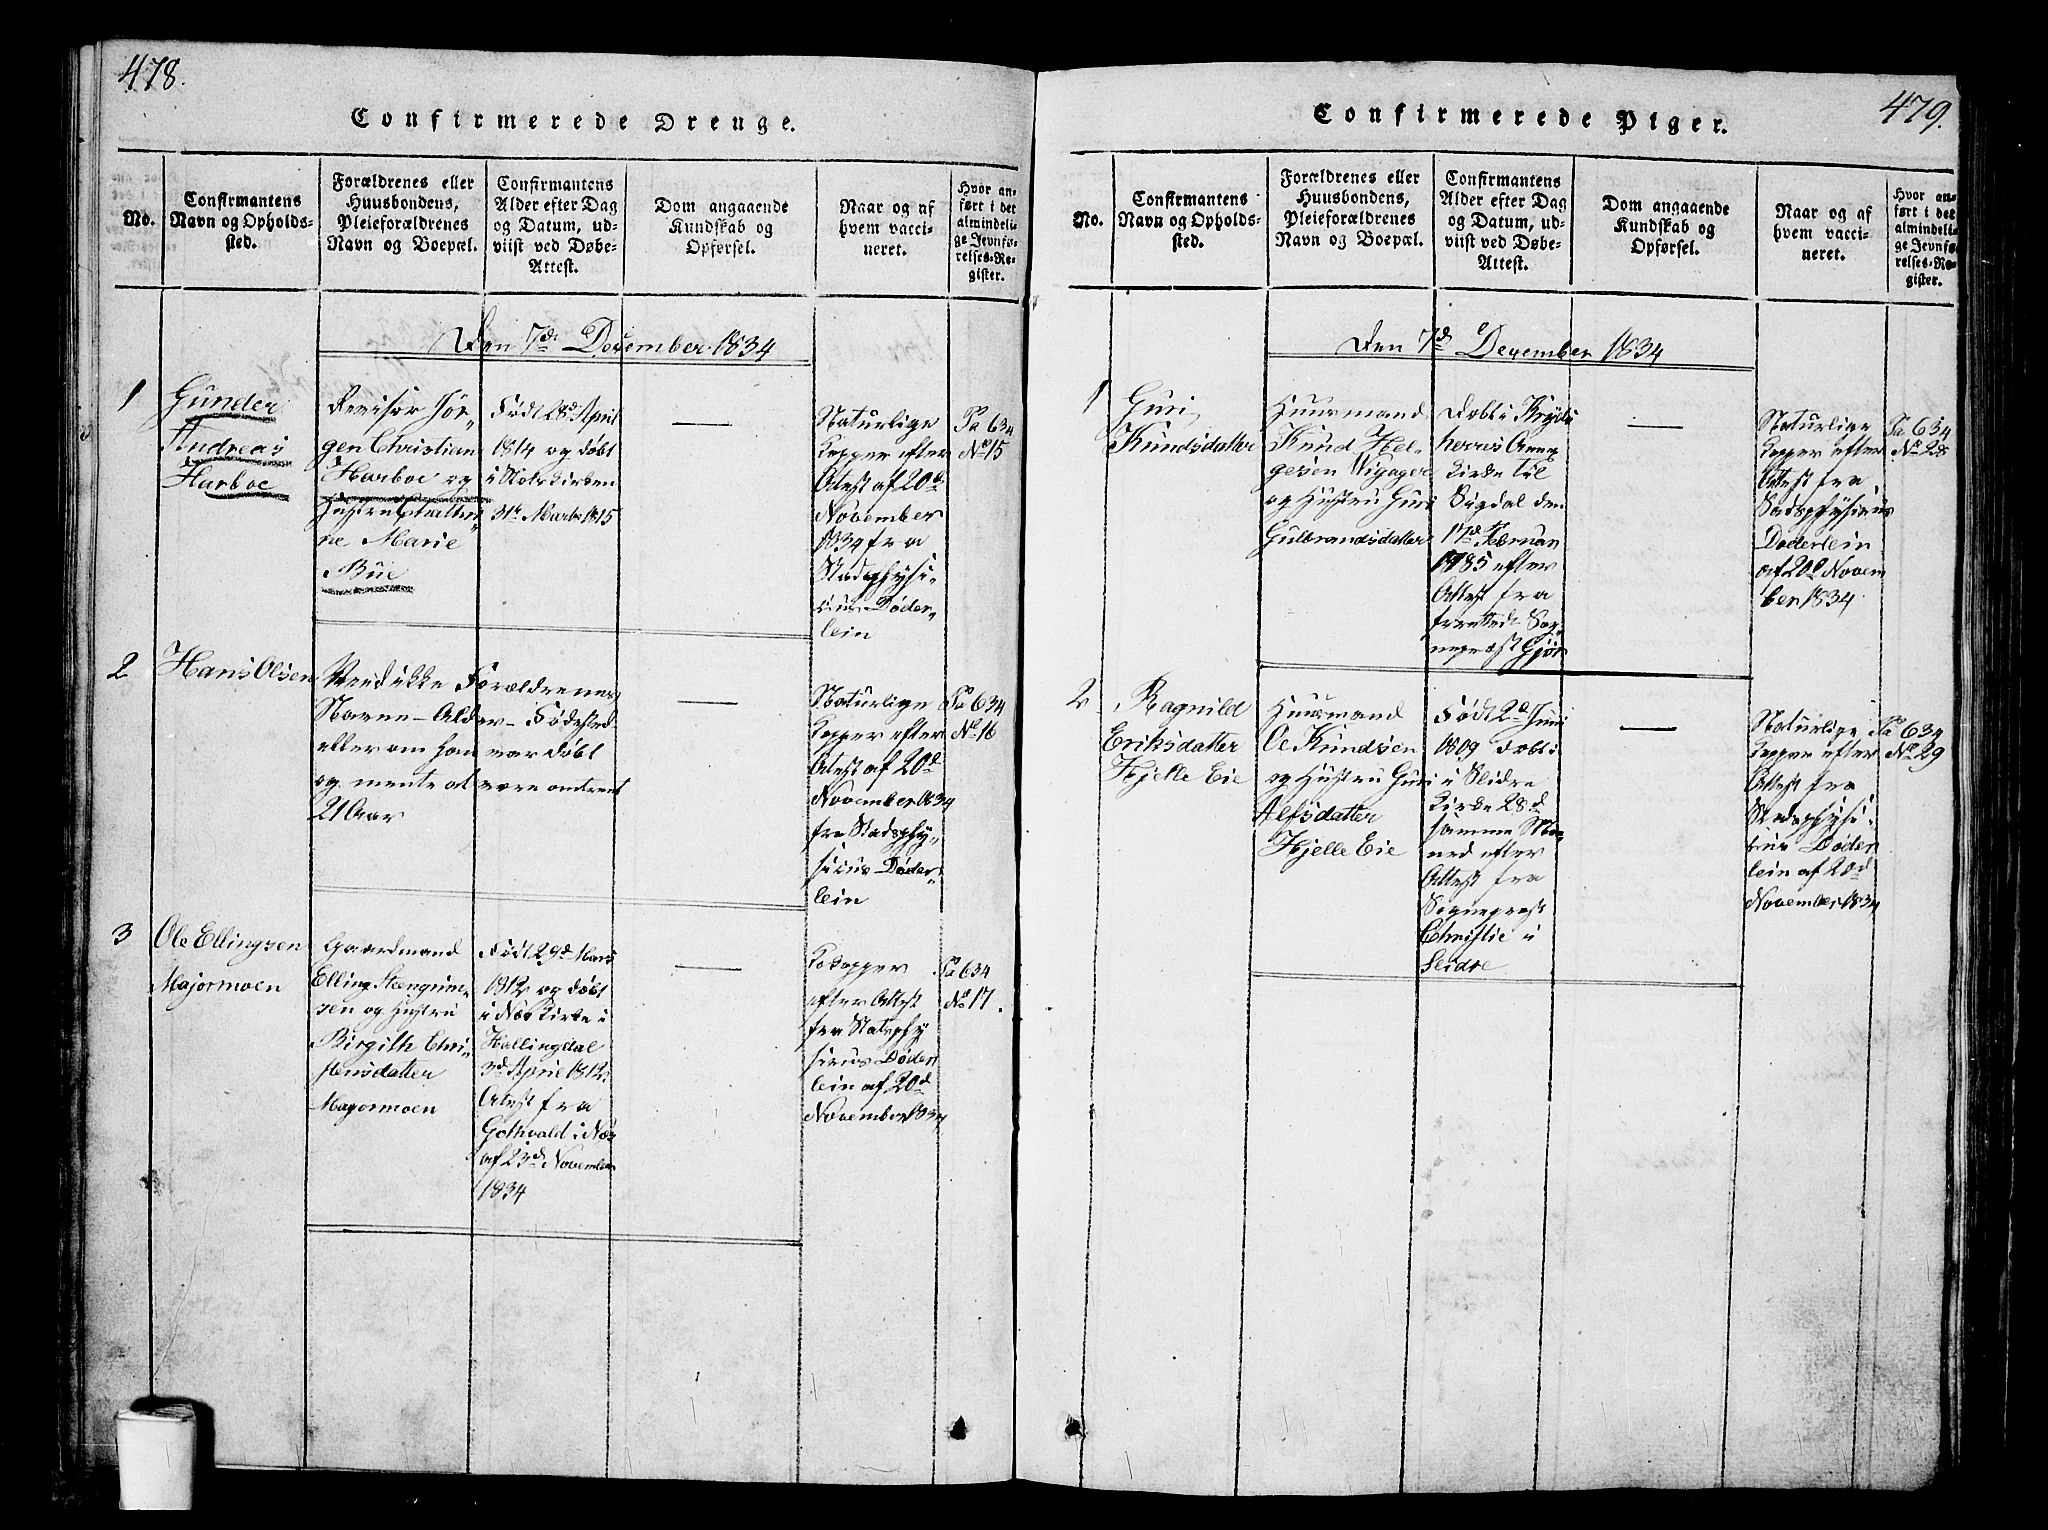 478.
Confirmerede Drenge.
No.
Confirmantens
Navn og Opholds-
sted.
Forældrenes eller
Huusbondens,
Pleieforældrenes
Navn og Boepæl.
Confirmantens
Alder efter Dag
og Datum, ud-
viist ved Døbe-
Attest.
Dom angaaende
Kundskab og
Opførsel.
Naar og af
hvem vacci-
neret.
Hvor an-
ført i det
almindeli-
ge Jevnfø-
relses-Re-
gister.
Den 7de December 1834
1
Gunder
Andreas
Harboe
Revisor Jør-
gen Christian
Harboe og
Hustru
ne Marie
Bue
Født 28d April
1814 og døbt
i
31te Marts 1815
—
Naturlige
Kopper efter
Attest af 20de
November
1834 fra
Stadsphysi-
cus Døder-
lein
Pa 634
No 15
2
Hans Olsen
Veed ikke Forældrenes
Navne - Alder - Fødested
eller om han var døbt
og mente at være omtrent
21 Aar
—
Naturlige
Kopper efter
Attest af 20d
November 1834
fra Stadsphy-
sicus Døder-
lein
Pa 634
No 16
3
Ole Ellingsen
Majormoen
Gaardmand
Elling Steengrim-
sen og Hustru
Birgith Chri-
stensdatter
Majormoen
Født 29d Mars
1812 og døbt
i Næs Kirke i
Hallingdal
3d April 1812.
Attest fra
Gothvald i Næs
af 23d November
1834
—
Kokopper
efter Attest
fra Stadsphy
sicus Døder
lein af 20d
November 1834
Pa 634
No 17.
479.
Confirmerede Piger.
No.
Confirmantens
Navn og Opholds-
sted.
Forældrenes eller
Huusbondens,
Pleieforældrenes
Navn og Boepæl.
Confirmantens
Alder efter Dag
og Datum, ud-
viist ved Døbe-
Attest.
Dom angaaende
Kundskab og
Opførsel.
Naar og af
hvem vacci-
neret.
Hvor an-
ført i det
almindeli-
ge Jevnfø-
relses-Re-
gister.
Den 7d December 1834
1
Guri
Knudsdatter
Huusmand
Knud Hel-
gesen Wigager
og Hustru Guri
Gulbrandsdatter
Døbt i Kryds
herres Annex
Kirke til
Sigdal den
17d Februar
1785 efter
Attest fra
Sog-
nepræst
—
Naturlige
Kopper efter
Attest fra
Stadsphysicus
Døderlein
af 20d Novem
ber 1834
Pa 634
No 28
2
Ragnild
Eriksdatter
Hjelle Eie
Huusmand
Knudsen
og Hustru Guri
Alfsdatter
Hjelle Eie
Født 2d Juni
1809 Døbt i
Slidre
Kirke 28d
samme Ma-
ned efter
Attest fra
Sognepræst
Christie i
Slidre
—
Naturlige
Kopper efter
Attest fra
Stadsphysi-
cus Døder
lein af 20d
November 1834
Pa 634
No 29